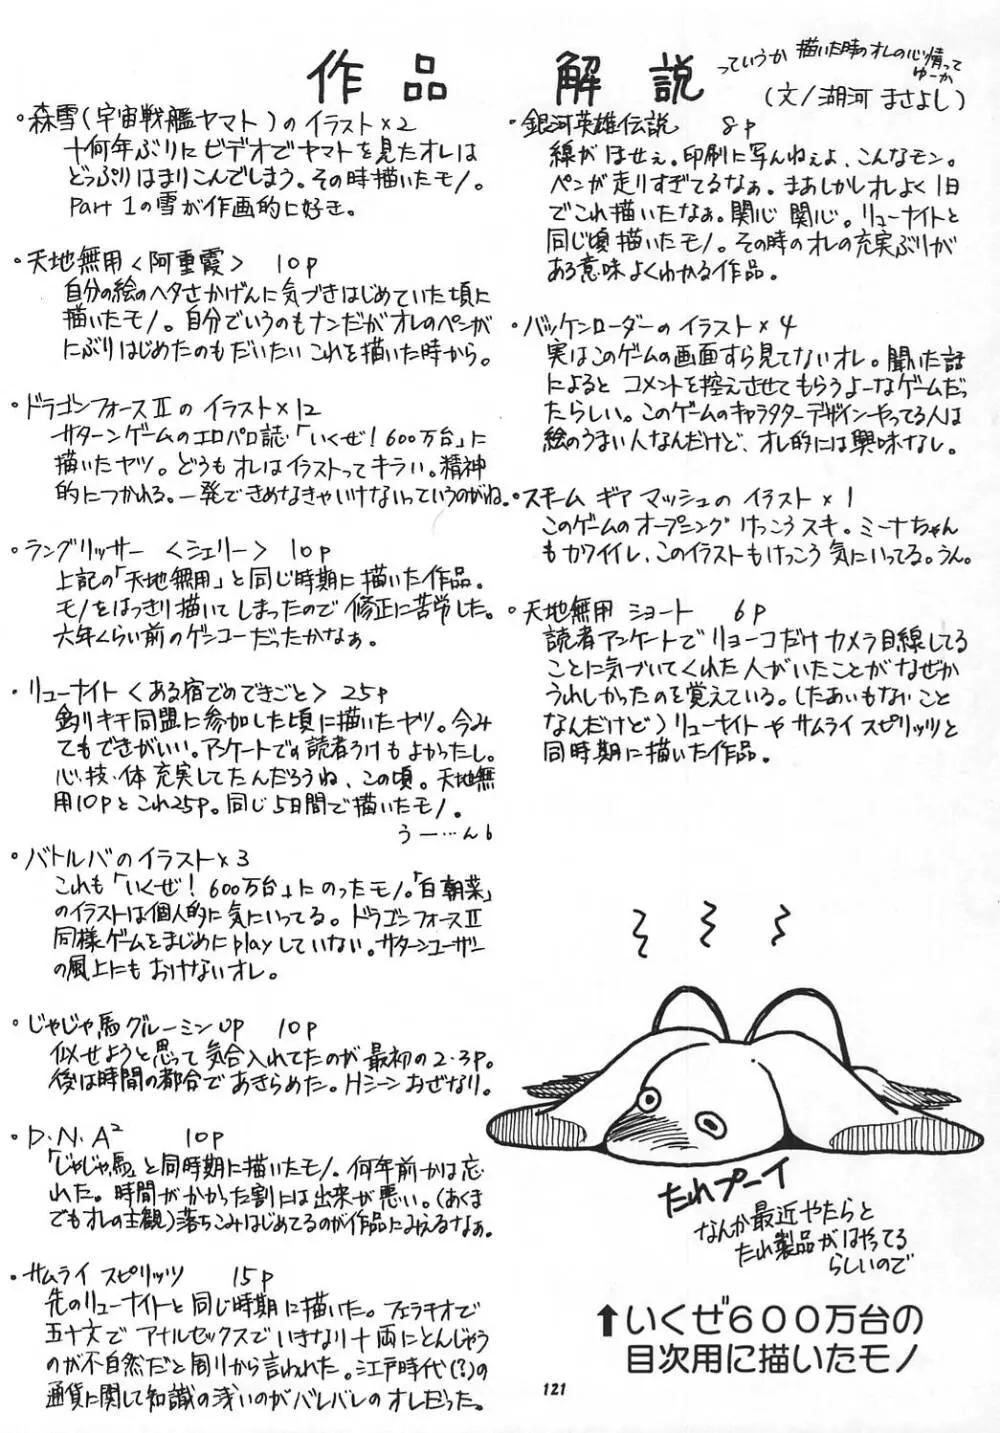 作品 解説
っていうか 描いた時のオレの心情って
ゆーか
(文/湖河 まさよし)
・森雪(宇宙戦艦ヤマト)の イラスト×2
十何年ぶりに ビデオで ヤマトを見たオレは
どっぷりはまりこんでしまう。その時描いたモノ。
Part 1の雪が作画的に好き。
・天地無用<阿重霞> 10P
自分の絵のヘタさかげんに気づきはじめていた頃に
描いたモノ。自分でいうのもナンだがオレのペンが
にぶりはじめたのもだいたい これを描いた時から。
・ドラゴンフォースⅡの イラスト×12
サターンゲームのエロパロ誌・「いくぜ!600万台」に
描いたヤツ。どうも オレはイラストってキライ。精神
的につかれる。一発できめなきゃいけないっていうのがね。
・ラングリッサー <シェリー> 10P
上記の「天地無用」と同じ時期に描いた作品。
モノをはっきり描いてしまったので 修正に苦労した。
六年くらい前のゲンコーだったかなぁ。
・リューナイト<ある宿でのできごと> 25P
釣りキチ同盟に参加した頃に描いたヤツ。今み
てもできがいい。アンケートでの読者うけもよかったし。
心・技・体 充実してたんだろうね、この頃。天地無
用10Pとこれ25P。同じ5日間で描いたモノ。
うー…ん
・バトルバのイラスト×3
これも「いくぜ!600万台」にのったモノ。「白朝菜」
のイラストは個人的に気にいってる。ドラゴンフォースⅡ
同様ゲームをまじめにplayしていない。サターンユーザー
の風上にも おけないオレ。
・じゃじゃ馬グルーミンUP 10P
似せようと思って 気合入れてたのが 最初の2・3P。
後は時間の都合で あきらめた。Hシーン おざなり。
・D・N・A² 10P
「じゃじゃ馬」と同時期に描いたモノ。何年前かは忘
れた。時間がかかった割には出来が悪い。(あくま
でもオレの主観)落ちこみはじめてるのが作品にみえるなぁ。
・サムライ スピリッツ 15P
先のリューナイトと同じ時期に描いた。フェラチオで
五十文で アナルセックスで いきなり十両にとんじゃう
のが不自然だと周りから言われた。江戸時代(?)の
通貨に関して知識の浅いのがバレバレのオレだった。
・銀河英雄伝説 8P
線がほせぇ。印刷に写んねぇよ、こんなモン。
ペンが走りすぎてるなぁ。まあしかしオレよく1日
でこれ描いたなぁ。関心 関心。リューナイトと
同じ頃描いたモノ。その時のオレの充実ぶりが
ある意味よくわかる作品。
・バッケンローダーの イラスト×4
実はこのゲームの画面すら見てないオレ。聞いた話
によると コメントを控えさせてもらうよーなゲームだっ
たらしい。このゲームのキャラクターデザインやってる人は
絵のうまい人なんだけど、オレ的には興味なし。
・スチーム ギア マッシュの イラスト×1
このゲームのオープニング けっこう スキ。ミーナちゃん
もカワイイし、このイラストもけっこう 気にいってる。うん。
・天地無用 ショート 6P
読者アンケートで リョーコだけ カメラ目線してる
ことに気づいてくれた人がいたことがなぜか
うれしかったのを覚えている。(たあいもないこと
なんだけど)リューナイトや サムライ スピリッツと
同時期に描いた作品。
たれプーイ
なんか最近やたらと
たれ製品がはやってる
らしいので
↑いくぜ600万台の
目次用に描いたモノ
121